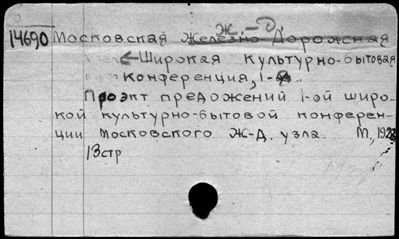 Ж.-Д.
14690 Московская Железно-Дорожная
Широкая культурно-бытовая
конференция, 1-я.
Проэкт предожений 1-ой широ-
кой культурно-бытовой конферен-
ции Московского Ж-Д. узла. М, 192
13 стр